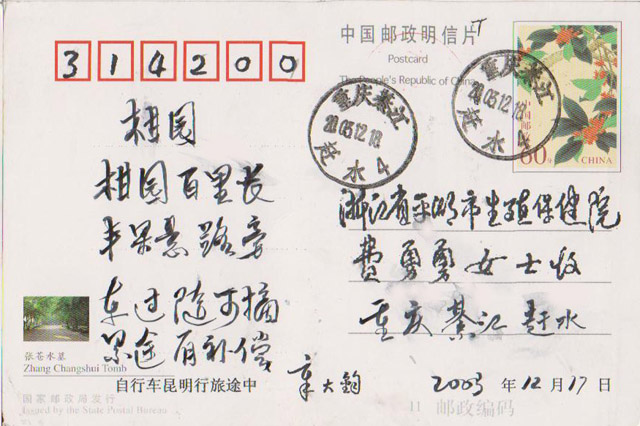 314200
中国邮政明信片
Postcard
The People's Republic of China
重庆綦江
2003.12.18
赶水
4
重庆綦江
2003.12.18
赶水
4
中国邮政
60分
CHINA
柑园
柑园百里长
丰果悬路旁
车过随可摘
累途有补偿
浙江省平湖市生殖保健院
费勇勇女士收
重庆綦江赶水
张苍水墓
Zhang Changshui Tomb
自行车昆明行旅途中
章大钧
2003年12月17日
国家邮政局发行
Issued by the State Postal Bureau
11
邮政编码